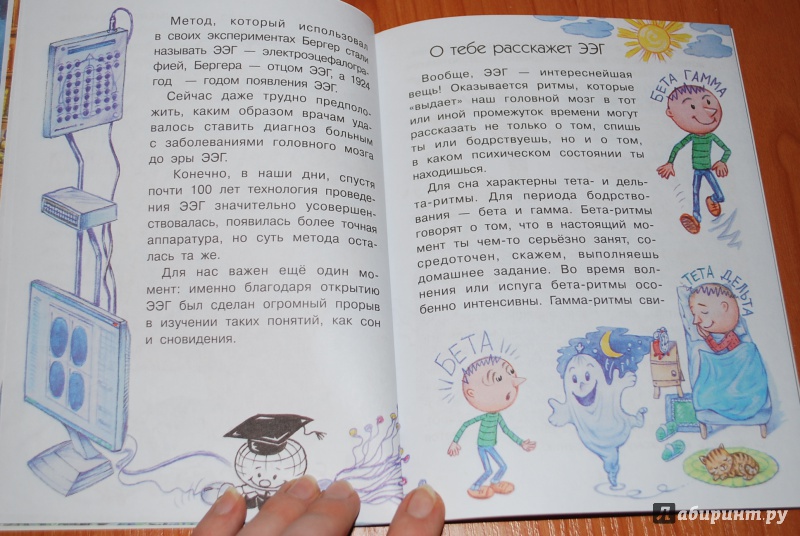 Метод, который использовал
в своих экспериментах Бергер стали
называть ЭЭГ — электроэцефалогра-
фией, Бергера — отцом ЭЭГ, а 1924
год — годом появления ЭЭГ.
Сейчас даже трудно предполо-
жить, каким образом врачам уда-
валось ставить диагноз больным
с заболеваниями головного мозга
до эры ЭЭГ.
Конечно, в наши дни, спустя
почти 100 лет технология проведе-
ния ЭЭГ значительно усовершен-
ствовалась, появилась более точная
аппаратура, но суть метода оста-
лась та же.
Для нас важен ещё один мо-
мент: именно благодаря открытию
ЭЭГ был сделан огромный прорыв
в изучении таких понятий, как сон
и сновидения.
О тебе расскажет ЭЭГ
Вообще, ЭЭГ — интереснейшая
вещь! Оказывается ритмы, которые
«выдает» наш головной мозг в тот
или иной промежуток времени могут
рассказать не только о том, спишь
ты или бодрствуешь, но и о том,
в каком психическом состоянии ты
находишься.
Для сна характерны тета- и дель-
та-ритмы. Для периода бодрство-
вания — бета и гамма. Бета-ритмы
говорят о том, что в настоящий мо-
мент ты чем-то серьёзно занят, со-
средоточен, скажем, выполняешь
домашнее задание. Во время вол-
нения или испуга бета-ритмы осо-
бенно интенсивны. Гамма-ритмы сви-
БЕТА ГАММА
ТЕТА ДЕЛЬТА
БЕТА
Лабиринт.ру